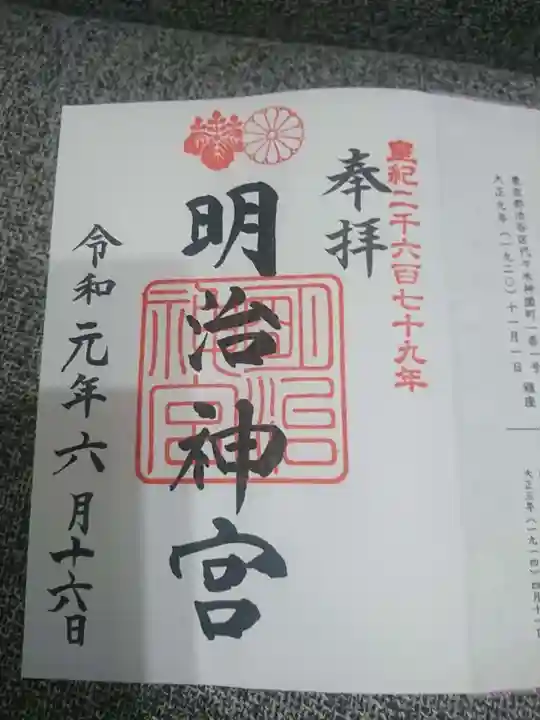 東京都渋谷区代々木神園町一番一号
大正九年(一九二〇)十一月一日 鎮座
大正三年(一九一四)四月十一日
皇紀二千六百七十九年
奉拝
明治神宮
明治神宮
令和元年六月十六日